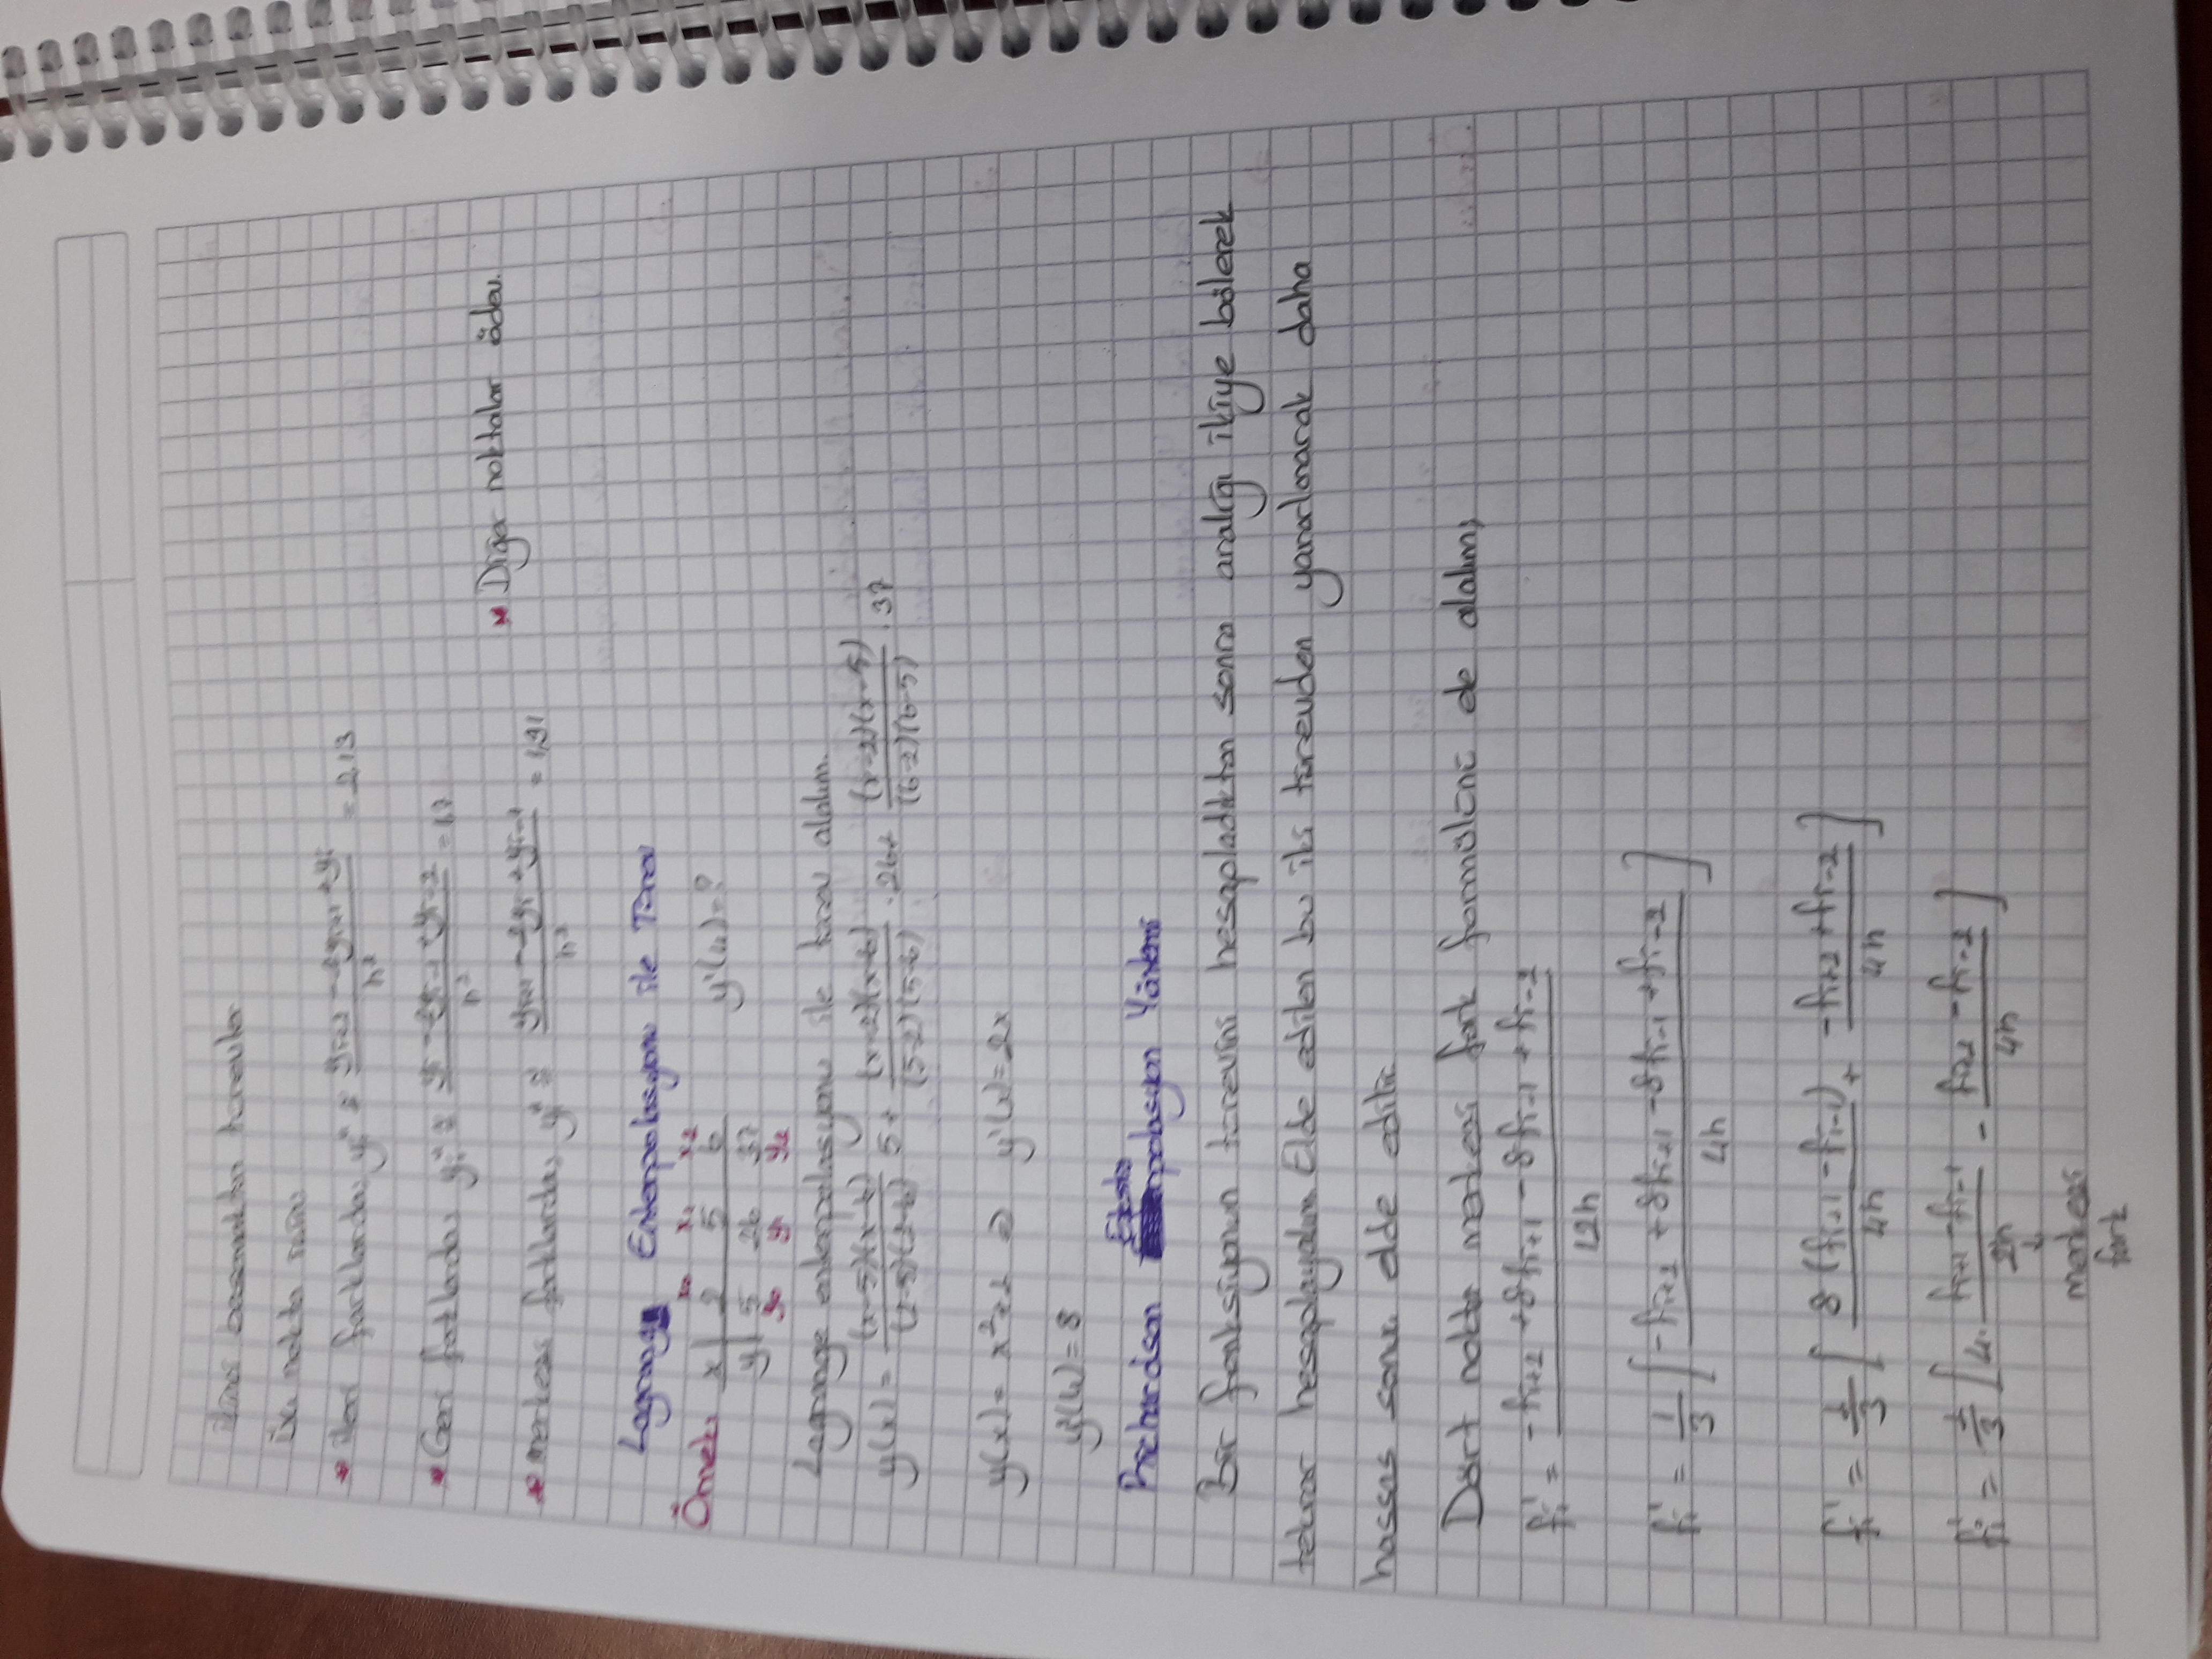 ikinci basamaktan türevler
üç nokta için
* ileri farklarda; yᵢ'' ≅ (yᵢ₊₂ - 2yᵢ₊₁ + yᵢ) / h² = 2,13
* Geri farklarda; yᵢ'' ≅ (yᵢ - 2yᵢ₋₁ + yᵢ₋₂) / h² = 1,7
* Diğer noktalar ödev.
* merkezi farklarda; yᵢ'' ≅ (yᵢ₊₁ - 2yᵢ + yᵢ₋₁) / h² = 1,91
Lagrange Enterpolasyonu ile Türev
x₀ x₁ x₂
Örnek; x | 2 5 6 y'(4)=?
y | 5 26 37
y₀ y₁ y₂
Lagrange enterpolasyonu ile türev alalım.
y(x) = (x-5)(x-6) / (2-5)(2-6) 5 + (x-2)(x-6) / (5-2)(5-6) . 26 + (x-2)(x-5) / (6-2)(6-5) . 37
y(x) = x²+1 ⇒ y'(x) = 2x
y'(4) = 8
Richardson Ekstrapolasyon Yöntemi
Bir fonksiyonun türevini hesapladıktan sonra aralığı ikiye bölerek
tekrar hesaplayalım. Elde edilen bu iki türevden yararlanarak daha
hassas sonuç elde edilir.
Dört nokta merkezi fark formülünü de alalım;
fᵢ' = (-fᵢ₊₂ + 8fᵢ₊₁ - 8fᵢ₋₁ + fᵢ₋₂) / 12h
fᵢ' = 1/3 [ (-fᵢ₊₂ + 8fᵢ₊₁ - 8fᵢ₋₁ + fᵢ₋₂) / 4h ]
fᵢ' = 1/3 [ 8(fᵢ₊₁ - fᵢ₋₁) / 4h + (-fᵢ₊₂ + fᵢ₋₂) / 4h ]
fᵢ' = 1/3 [ 4. (fᵢ₊₁ - fᵢ₋₁) / 2h - (fᵢ₊₂ - fᵢ₋₂) / 4h ]
↓
merkezi
fark